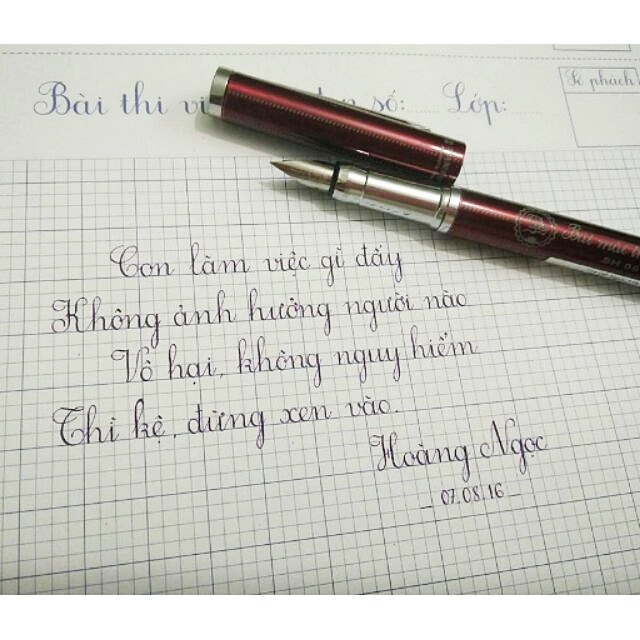 Bài thi vi số: Lớp:
Số phách
Bút mài
Con làm việc gì đấy
Không ảnh hưởng người nào
Vô hại, không nguy hiểm
Thì kệ, đừng xen vào.
Hoàng Ngọc
- 07.08.16 -